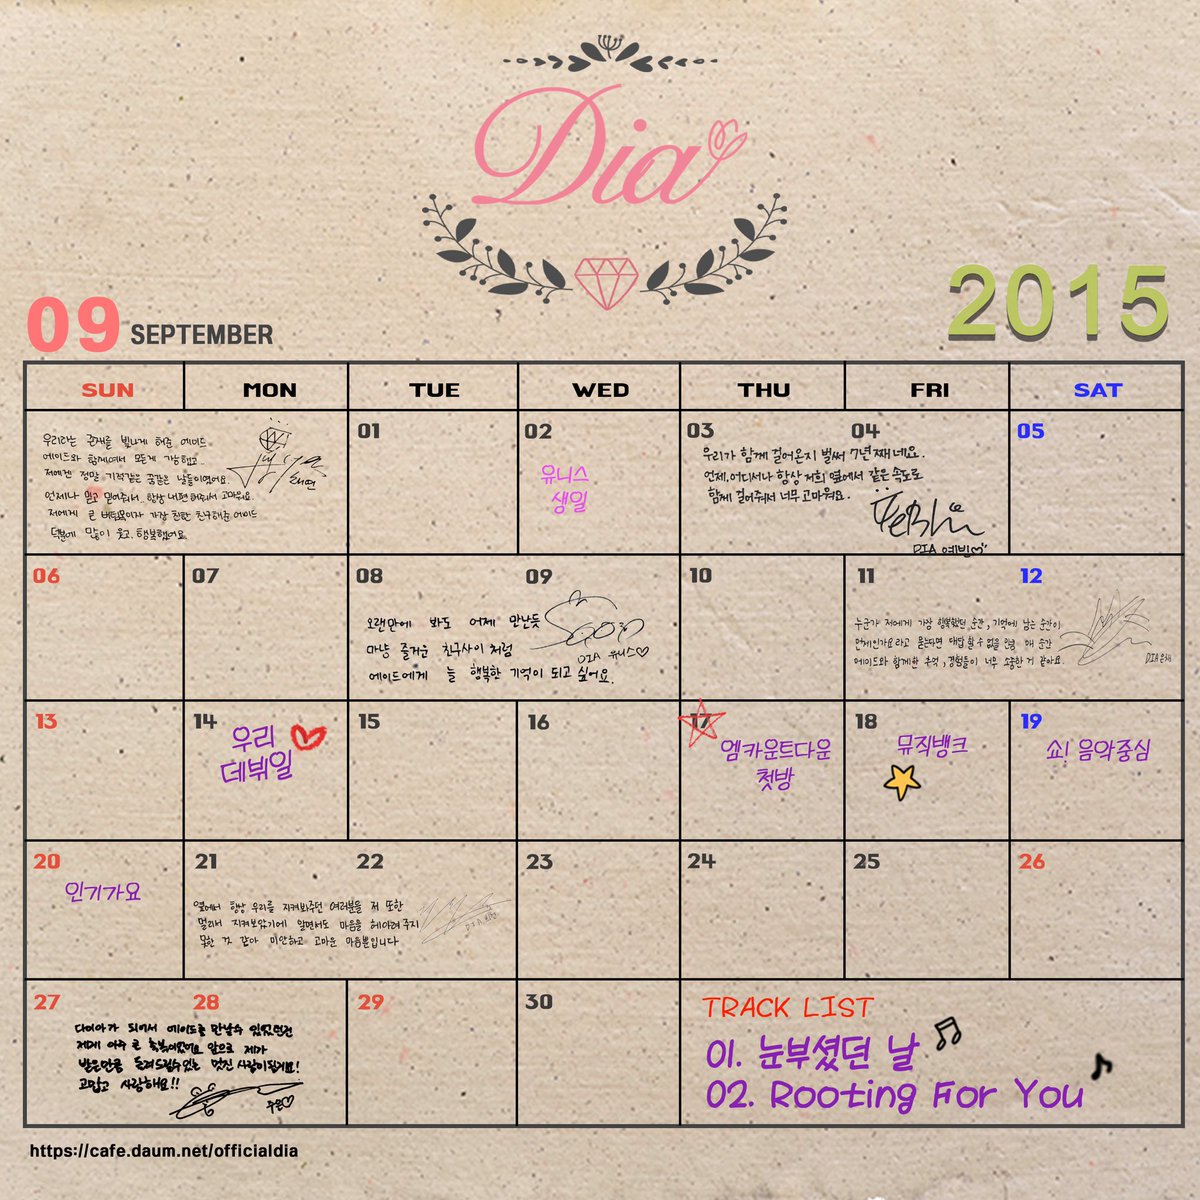 Dia
09 SEPTEMBER
2015
SUN MON TUE WED THU FRI SAT
우리라는 존재를 빛나게 해준 에이드
에이드와 함께여서 모든게 가능했고..
저에겐 정말 기적같은 꿈같은 날들이였어요.
언제나 믿고 믿어줘서.. 항상 내편 해줘서 고마워요.
저에게 큰 버팀목이자 가장 친한 친구해준 에이드
덕분에 많이 웃고, 행복했어요.
01
02
유니스
생일
03 04
우리가 함께 걸어온지 벌써 7년째네요.
언제, 어디서나 항상 저희 옆에서 같은 속도로
함께 걸어줘서 너무 고마워요.
DIA 예빈♡
05
06
07
08 09
오랜만에 봐도 어제 만난듯
마냥 즐거운 친구사이 처럼
에이드에게 늘 행복한 기억이 되고 싶어요.
DIA 유니스♡
10
11 12
누군가 저에게 가장 행복했던 순간, 기억에 남는 순간이
언제인가요 라고 묻는다면 대답 할 수 없을 만큼 매 순간
에이드와 함께한 추억, 경험들이 너무 소중한 거 같아요.
DIA 은채
13
14
우리
데뷔일
15
16
17
엠카운트다운
첫방
18
뮤직뱅크
19
쇼! 음악중심
20
인기가요
21 22
옆에서 항상 우리를 지켜봐주던 여러분을 저 또한
멀리서 지켜보았기에 알면서도 마음을 헤아려 주지
못한 것 같아 미안하고 고마운 마음뿐입니다
23
24
25
26
27 28
다이아가 되어서 에이드를 만날수 있었던건
제게 아주 큰 축복이었어요 앞으로 제가
받은만큼 돌려드릴수있는 멋진 사람이될게요!
고맙고 사랑해요!!
주은♡
29
30
TRACK LIST
01. 눈부셨던 날
02. Rooting For You
https://cafe.daum.net/officialdia